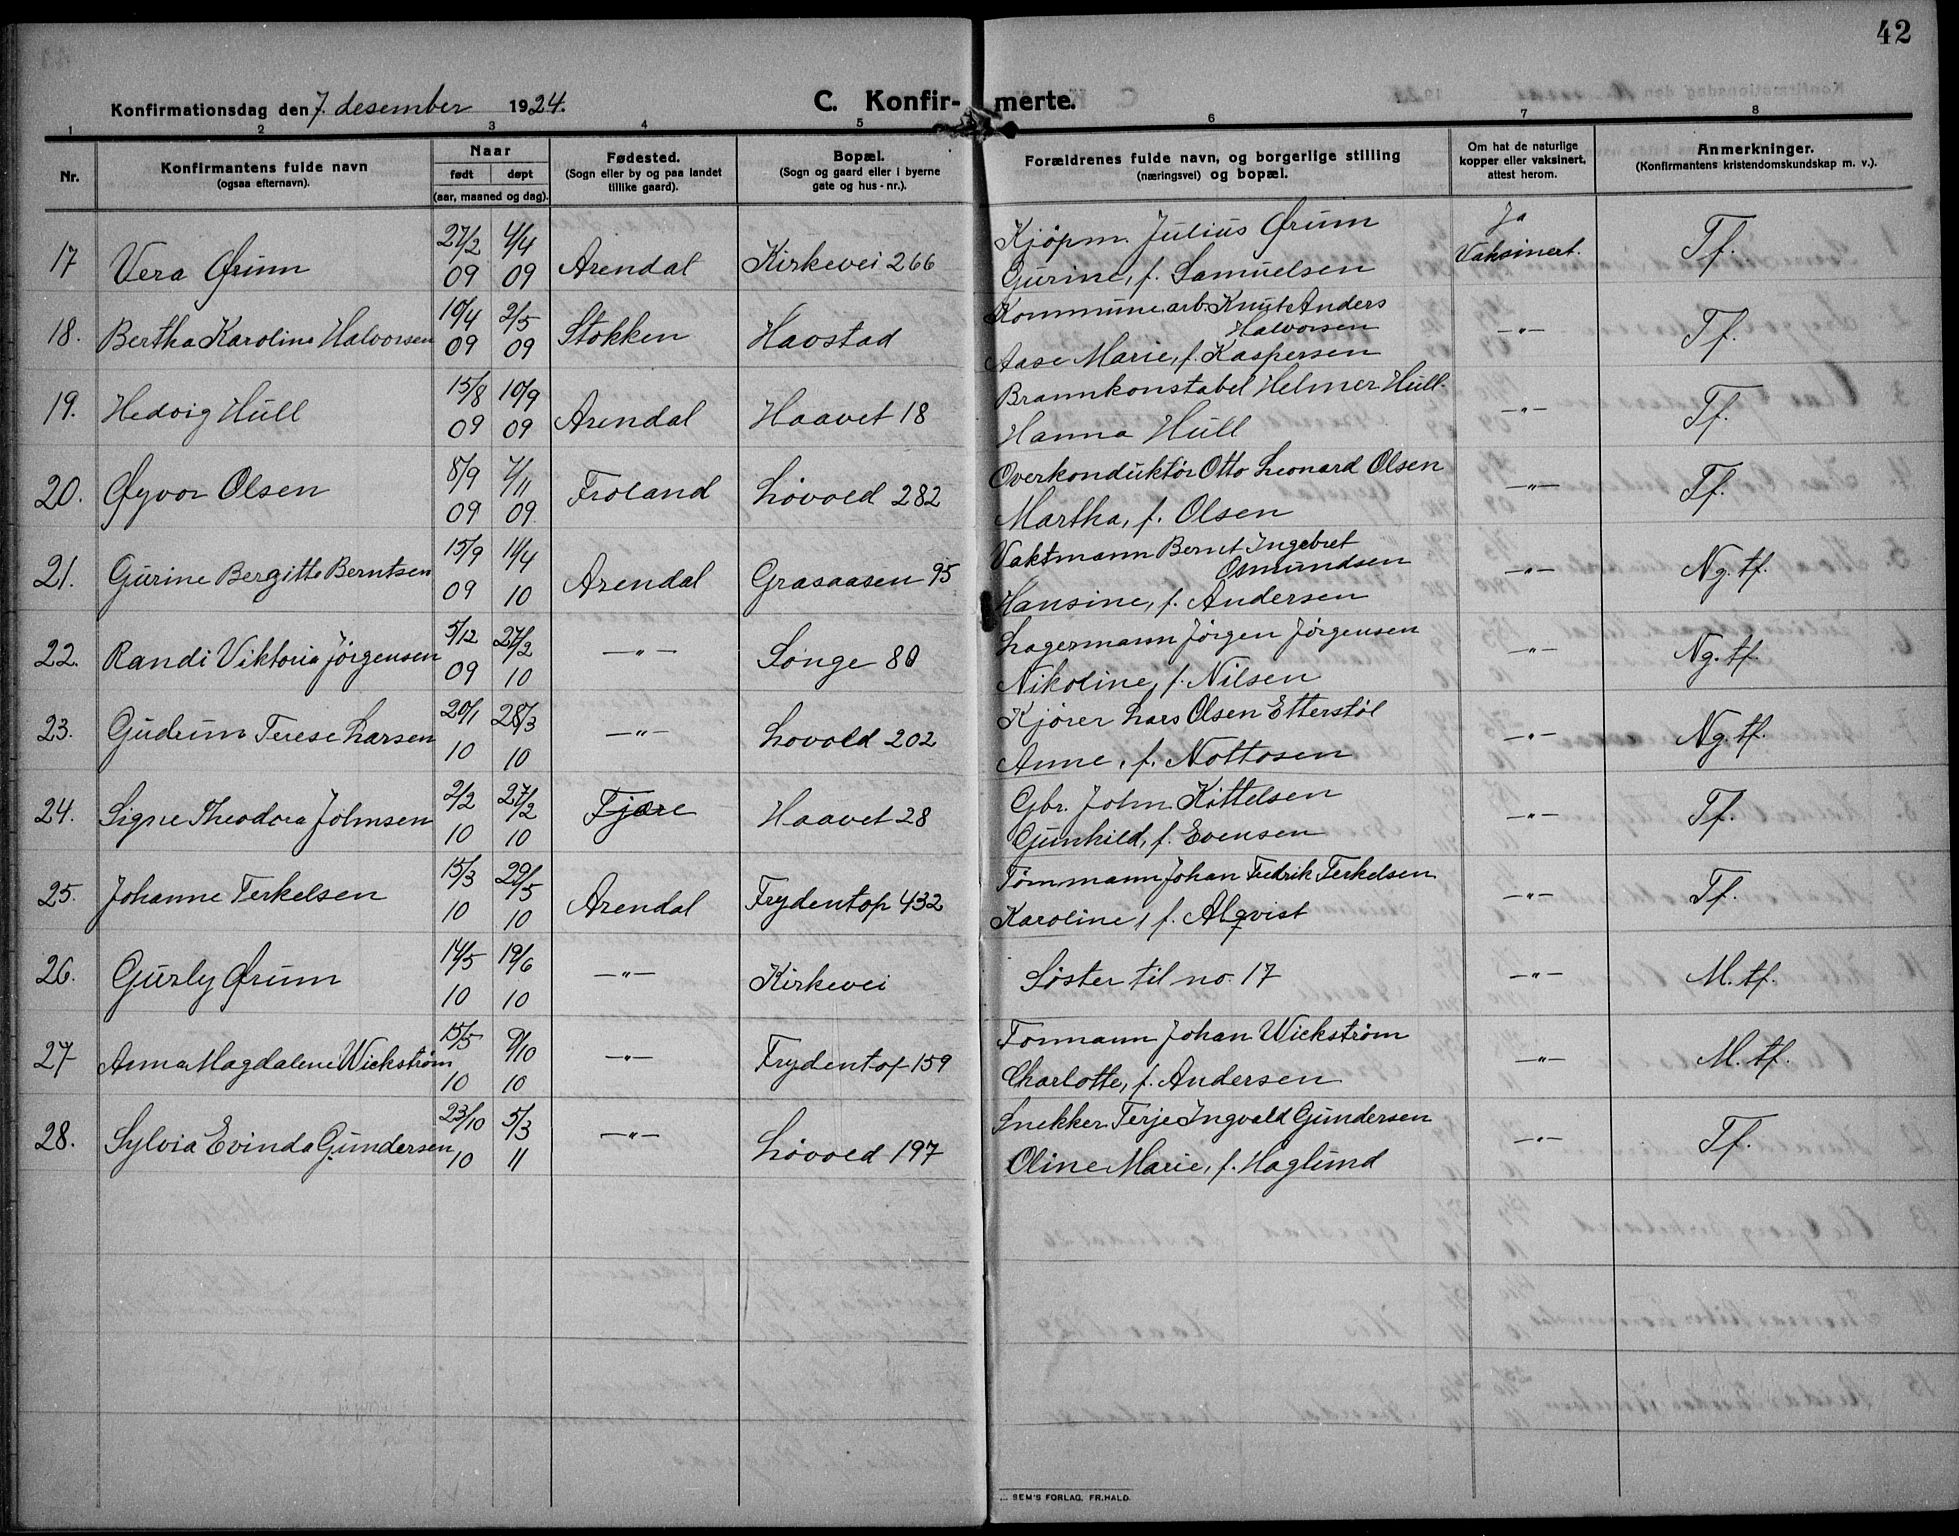 42
Konfirmationsdag den 7. desember 1924. C. Konfir- merte.
1 2 3 4 5 6 7 8
Nr. Konfirmantens fulde navn (ogsaa efternavn). Naar født døpt (aar, maaned og dag). Fødested. (Sogn eller by og paa landet tillike gaard). Bopæl. (Sogn og gaard eller i byerne gate og hus-nr.). Forældrenes fulde navn, og borgerlige stilling (næringsvei) og bopæl. Om hat de naturlige kopper eller vaksinert, attest herom. Anmerkninger. (Konfirmantens kristendomskundskap m. v.).
17 Vera Ørum 27/2 09 4/4 09 Arendal Kirkevei 266 Kjøpm. Julius Ørum Ja Vaksinert. Tf.
Gurine, f. Samuelsen
18. Bertha Karoline Halvorsen 10/4 09 2/5 09 Stokken Havstad Kommunearb. Knut Anders Halvorsen -"- Tf.
Aase Marie, f. Kaspersen
19. Hedvig Hull 15/8 09 10/9 09 Arendal Haavet 18 Brannkonstabel Helmer Hull. -"- Tf.
Hanna Hull
20. Øyvor Olsen 8/9 09 7/11 09 Froland Løvold 282 Overkonduktør Otto Leonard Olsen -"- Tf.
Martha, f. Olsen
21. Gurine Bergitte Berntsen 15/9 09 11/4 10 Arendal Grasaasen 95 Vaktmann Bernt Ingebret Osmundsen -"- Ng. tf.
Hansine, f. Andersen
22. Randi Viktoria Jørgensen 5/12 09 27/2 10 -"- Songe 80 Lagermann Jørgen Jørgensen -"- Ng. tf.
Nikoline, f. Nilsen
23. Gudrun Terese Larsen 20/1 10 28/3 10 -"- Lovold 202 Kjører Lars Olsen Etterstøl -"- Ng. tf.
Anne, f. Nottosen
24. Signe Theodora Johnsen 2/2 10 27/2 10 Fjære Haavet 28 Gbr. John Kittelsen -"- Tf.
Gunhild, f. Evensen
25. Johanne Terkelsen 15/3 10 29/5 10 Arendal Frydentop 432 Tømmann Johan Fredrik Terkelsen -"- Tf.
Karoline, f. Alqvist
26. Gurly Ørum 14/5 10 19/6 10 -"- Kirkevei Søster til no. 17 -"- M. tf.
27 Anna Magdalene Wickstrøm 15/5 10 9/10 10 -"- Frydentop 159 Formann Johan Wickstrøm -"- M. tf.
Charlotte, f. Andersen
28. Sylvia Evinda Gundersen 23/10 10 5/3 11 -"- Løvold 197 Snekker Terje Ingvald Gundersen -"- Tf.
Oline Marie, f. Haglund
SEM'S FORLAG, FR.HALD.